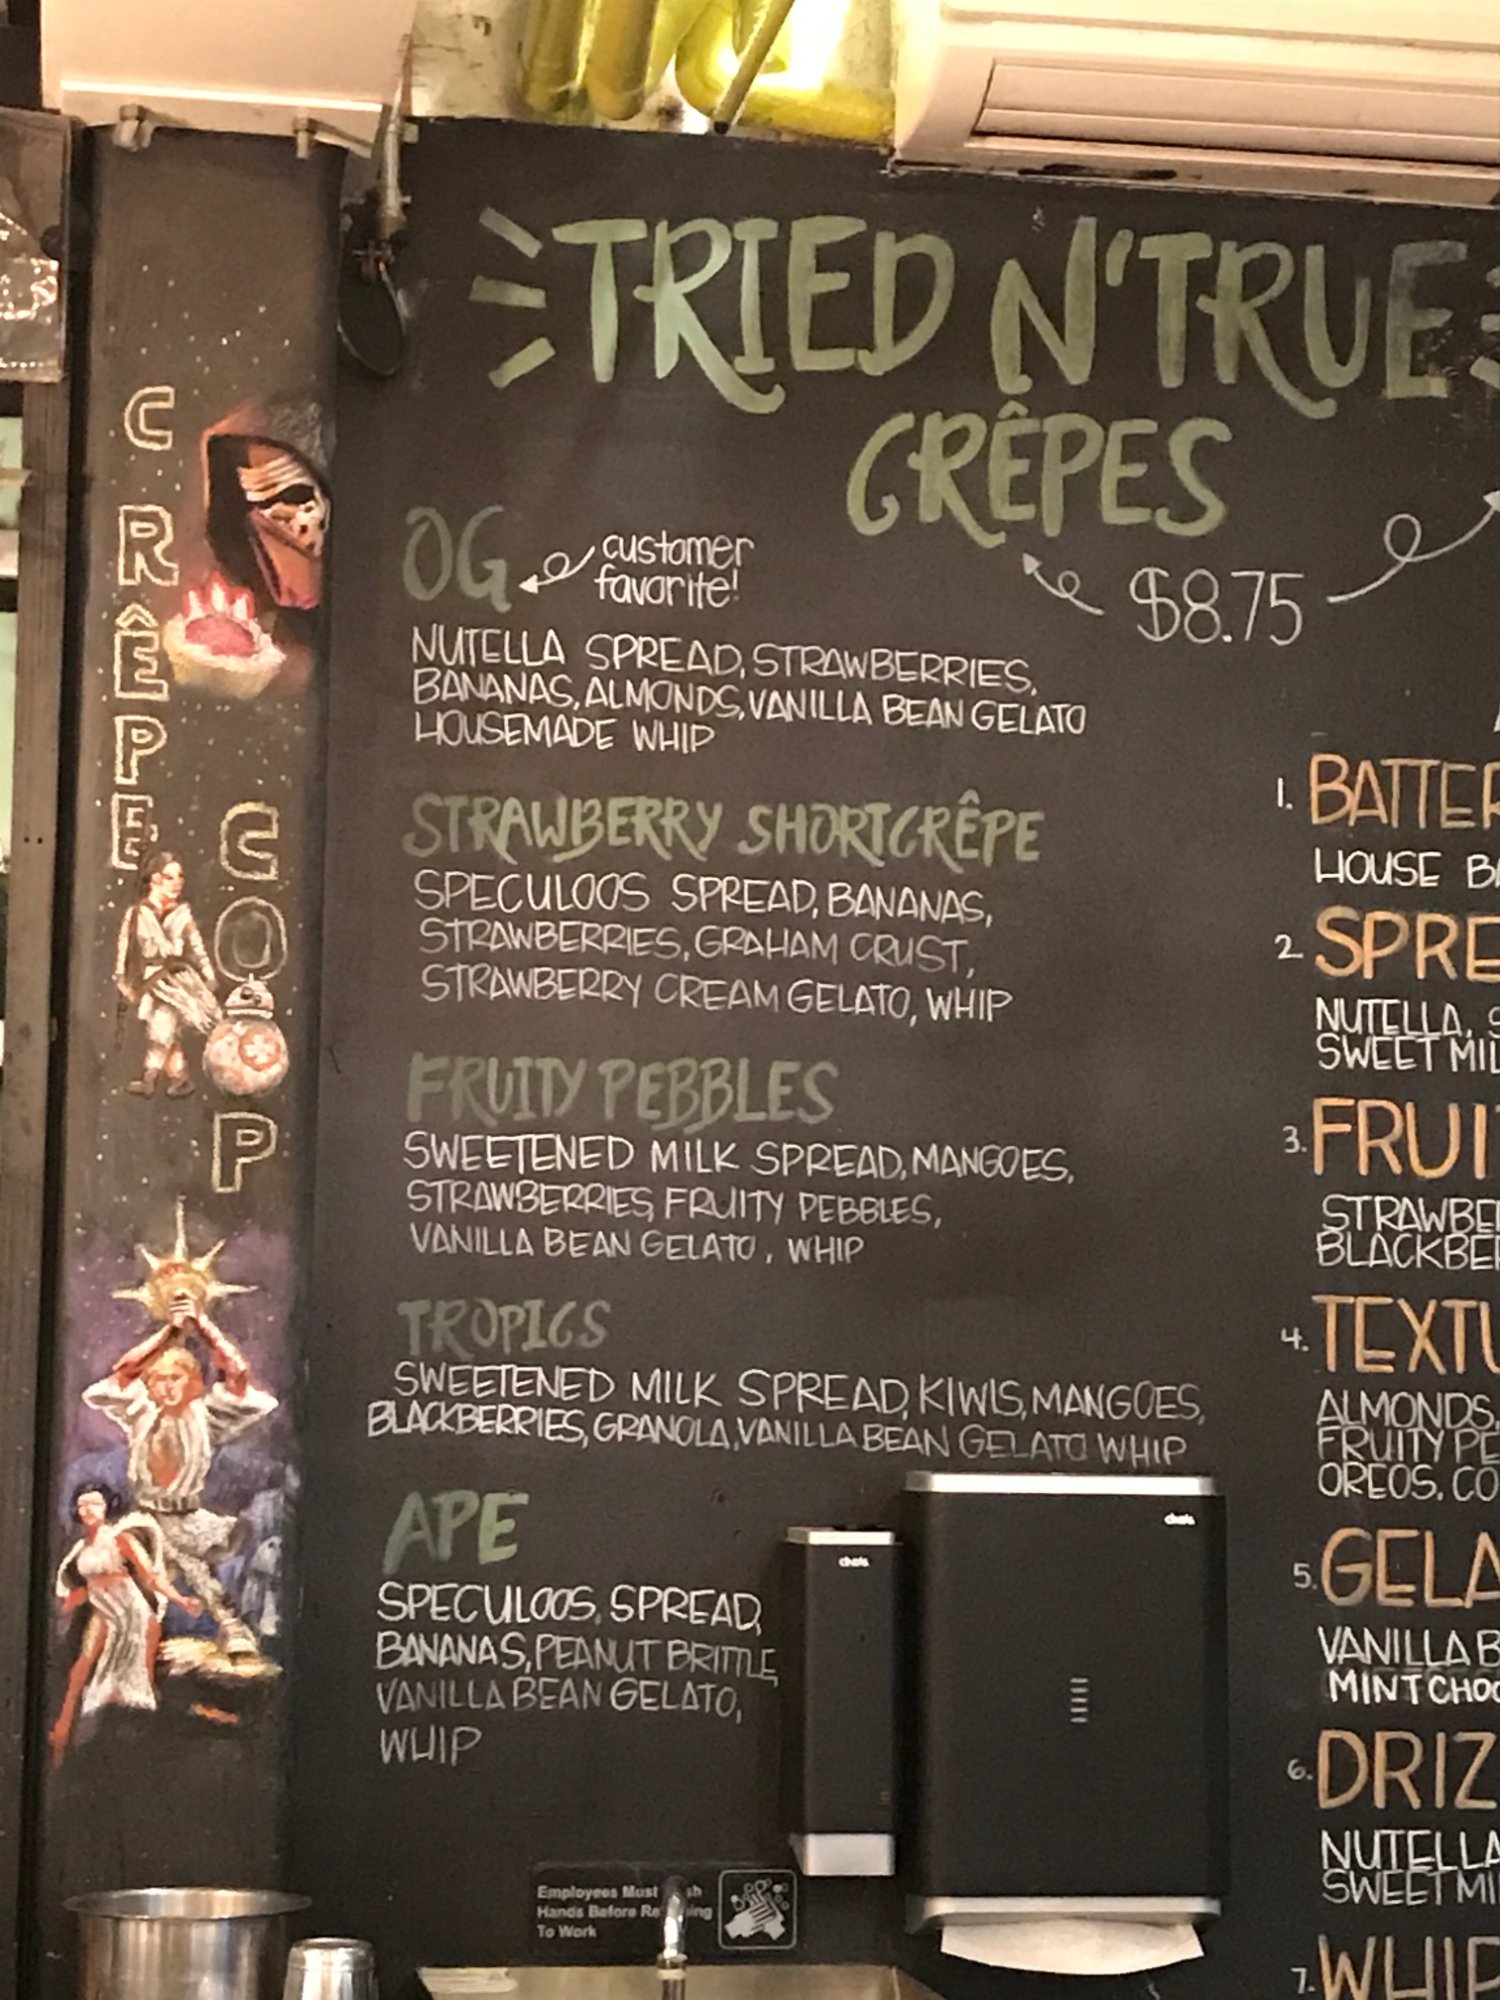 TRIED N'TRUE
CRÊPES
$8.75
OG
customer
favorite!
NUTELLA SPREAD, STRAWBERRIES,
BANANAS, ALMONDS, VANILLA BEAN GELATO
HOUSEMADE WHIP
STRAWBERRY SHORTCRÊPE
SPECULOOS SPREAD, BANANAS,
STRAWBERRIES, GRAHAM CRUST,
STRAWBERRY CREAM GELATO, WHIP
FRUITY PEBBLES
SWEETENED MILK SPREAD, MANGOES,
STRAWBERRIES, FRUITY PEBBLES,
VANILLA BEAN GELATO, WHIP
TROPICS
SWEETENED MILK SPREAD, KIWIS, MANGOES,
BLACKBERRIES, GRANOLA, VANILLA BEAN GELATO WHIP
APE
SPECULOOS, SPREAD,
BANANAS, PEANUT BRITTLE,
VANILLA BEAN GELATO,
WHIP
CRÊPE
COOP
1. BATTER
HOUSE
2.
NUTELLA,
SWEET
3.
4.
ALMONDS,
FRUITY
OREOS.
5.
VANILLA
MINT
6.
NUTELLA
SWEET
7. WHIP
Employees Must
Hands Before
To Work